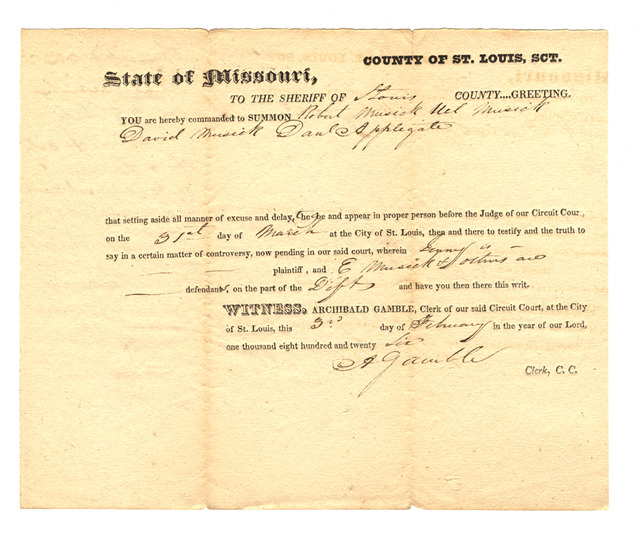 COUNTY OF ST. LOUIS, SCT.
State of Missouri,
TO THE SHERIFF OF St Louis COUNTY....GREETING.
YOU are hereby commanded to SUMMON Robert Musick Uel Musick
David Musick Danl Applegate
that setting aside all manner of excuse and delay, they be and appear in proper person before the Judge of our Circuit Cour,
on the 31st day of March at the City of St. Louis, then and there to testify and the truth to
say in a certain matter of controversy, now pending in our said court, wherein Jenny is
plaintiff, and E Musick & others are
defendants, on the part of the Defts and have you then there this writ.
WITNESS. ARCHIBALD GAMBLE, Clerk of our said Circuit Court, at the City
of St. Louis, this 3rd day of February in the year of our Lord,
one thousand eight hundred and twenty Six
A Gamble
Clerk, C. C.